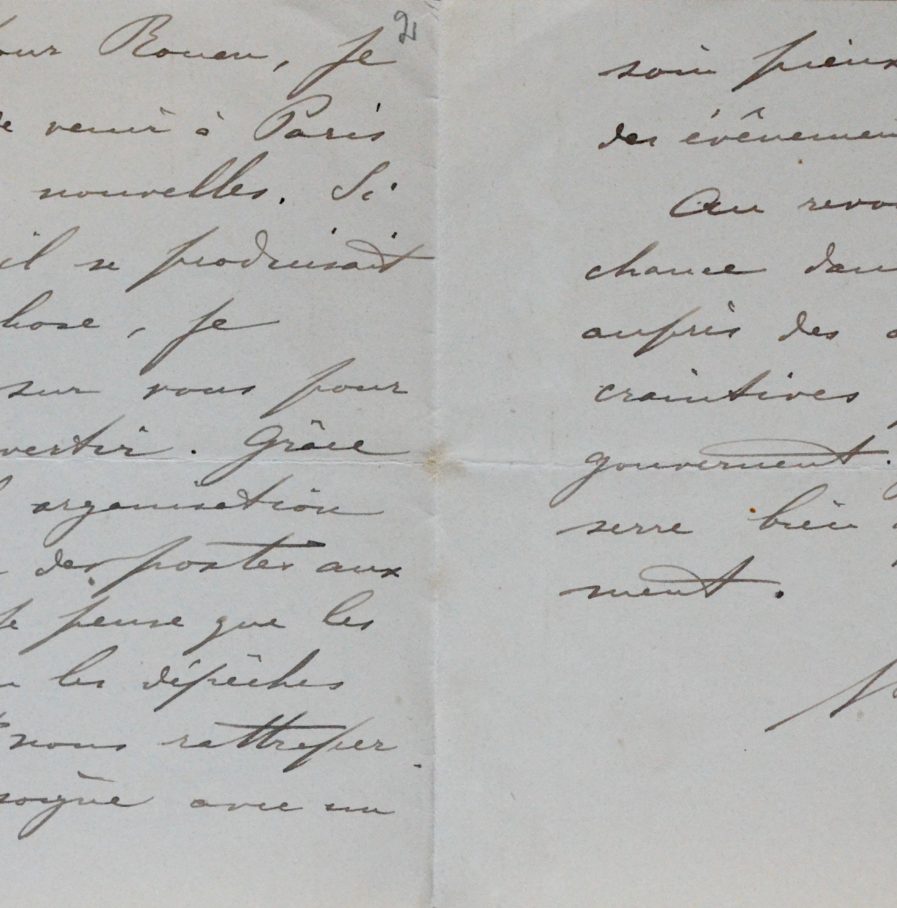 2
our Rouen, je
de venir à Paris
nouvelles. Si
il se produisait
hose, je
sur vous pour
vertir. Grâce
organisation
des postes aux
je pense que les
les dépêches
nous rattraper.
soigne avec un
soin pieux
des évênemen
Au revo
chance dan
auprès des
craintives
gouvernement.
serre bien
ment.